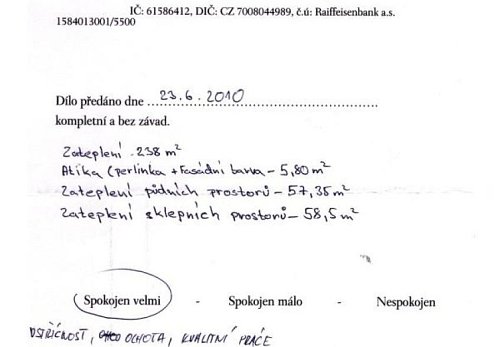 IČ: 61586412, DIČ: CZ 7008044989, č.ú: Raiffeisenbank a.s.
1584013001/5500
Dílo předáno dne 23.6.2010
kompletní a bez závad.
Zateplení - 238 m²
Atika (perlinka + fasádní barva - 5,80 m²
Zateplení půdních prostorů - 57,35 m²
Zateplení sklepních prostorů - 58,5 m²
Spokojen velmi - Spokojen málo - Nespokojen
VSTŘÍCNOST, OCHOTA, KVALITNÍ PRÁCE